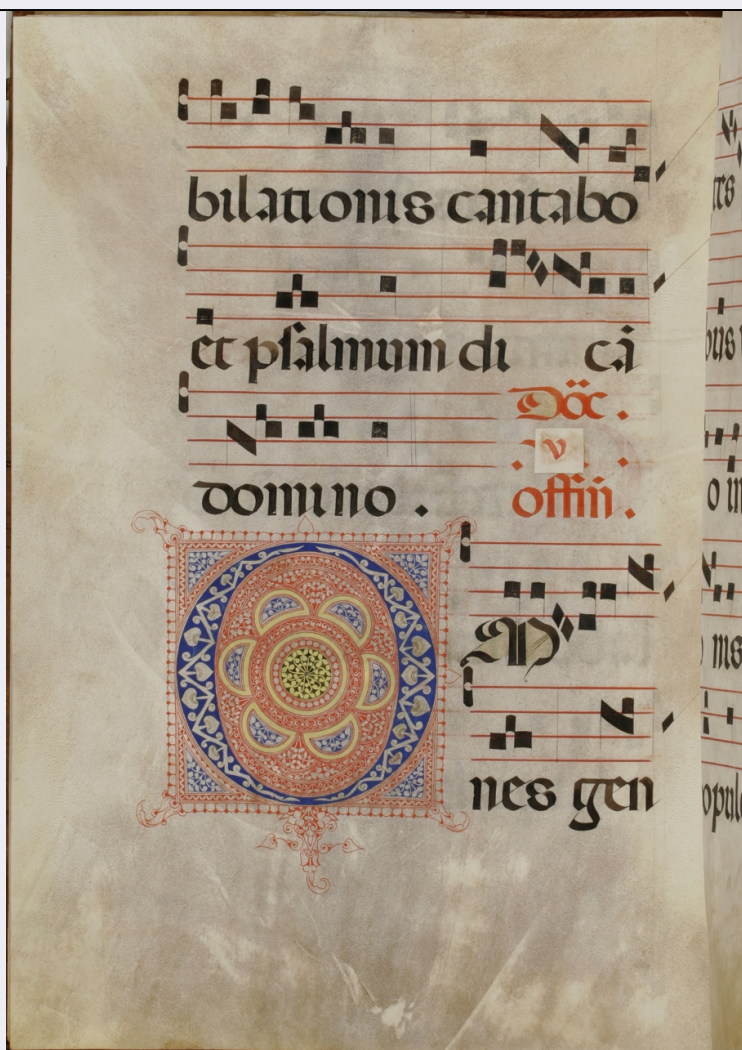 bilationis cantabo
et psalmum di cā
domino .
Döc .
. v .
offiñ .
OM
nes gen